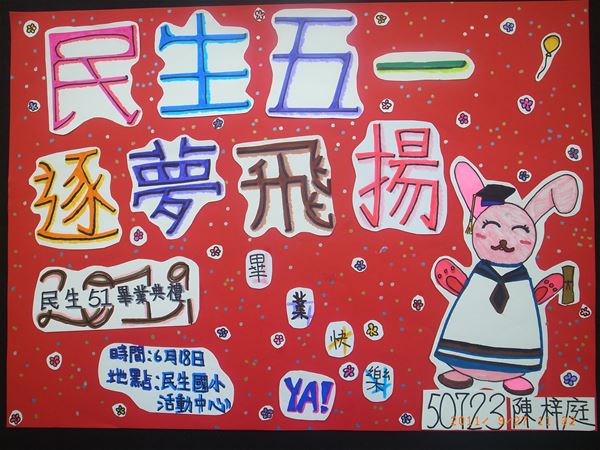 民生五一
逐夢飛揚
2011
民生51畢業典禮
畢
業
快
樂
時間:6月18日
地點:民生國小
活動中心
YA!
50723陳梓庭